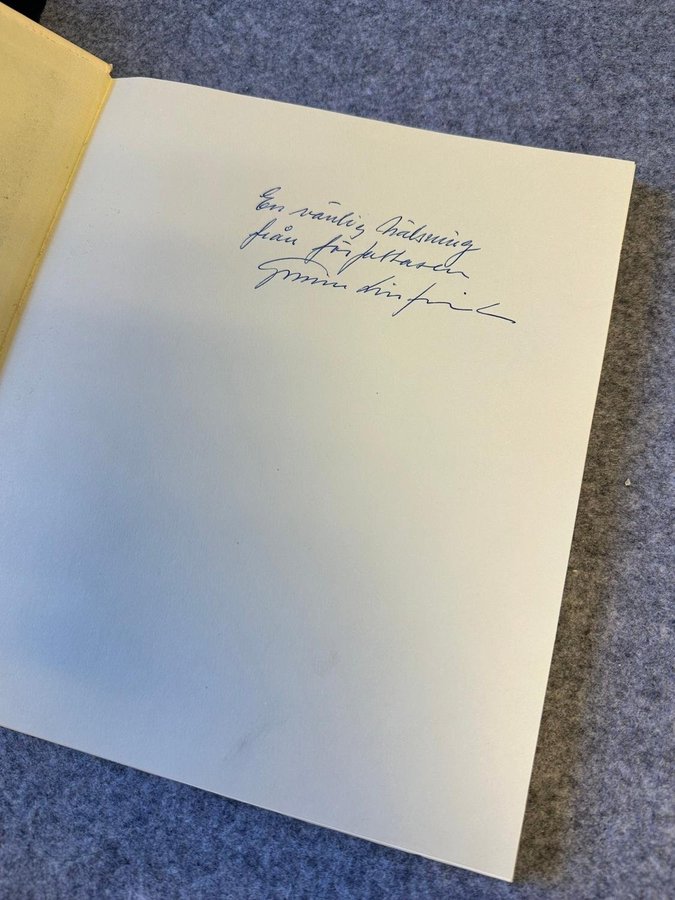 En vänlig hälsning
från författaren